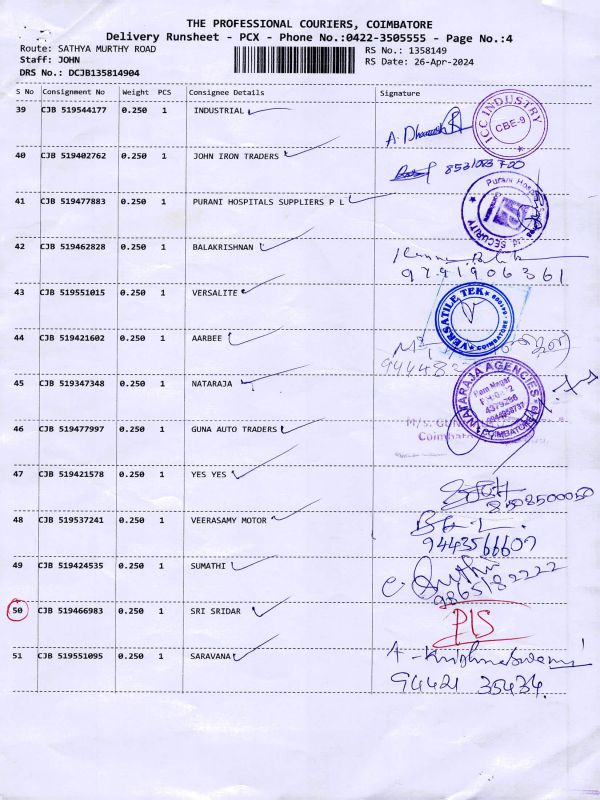 THE PROFESSIONAL COURIERS, COIMBATORE
Delivery Runsheet - PCX - Phone No.:0422-3505555 - Page No.:4
Route: SATHYA MURTHY ROAD RS No.: 1358149
Staff: JOHN RS Date: 26-Apr-2024
DRS No.: DCJB135814904
S No Consignment No Weight PCS Consignee Details Signature
39 CJB 519544177 0.250 1 INDUSTRIAL
ICC INDUSTRY CBE-9
40 CJB 519402762 0.250 1 JOHN IRON TRADERS
41 CJB 519477883 0.250 1 PURANI HOSPITALS SUPPLIERS P L
SECURITY
42 CJB 519462828 0.250 1 BALAKRISHNAN
9791906361
43 CJB 519551015 0.250 1 VERSALITE
VERSATILE TEK COIMBATORE
44 CJB 519421602 0.250 1 AARBEE
45 CJB 519347348 0.250 1 NATARAJA
NATARAJA AGENCIES
4379286
COIMBATORE
46 CJB 519477997 0.250 1 GUNA AUTO TRADERS
M/s. GUNA
47 CJB 519421578 0.250 1 YES YES
8508500050
48 CJB 519537241 0.250 1 VEERASAMY MOTOR
9443566607
49 CJB 519424535 0.250 1 SUMATHI
9865182222
50 CJB 519466983 0.250 1 SRI SRIDAR
PIS
51 CJB 519551095 0.250 1 SARAVANA
A - Krishnaswami
94421 35434.